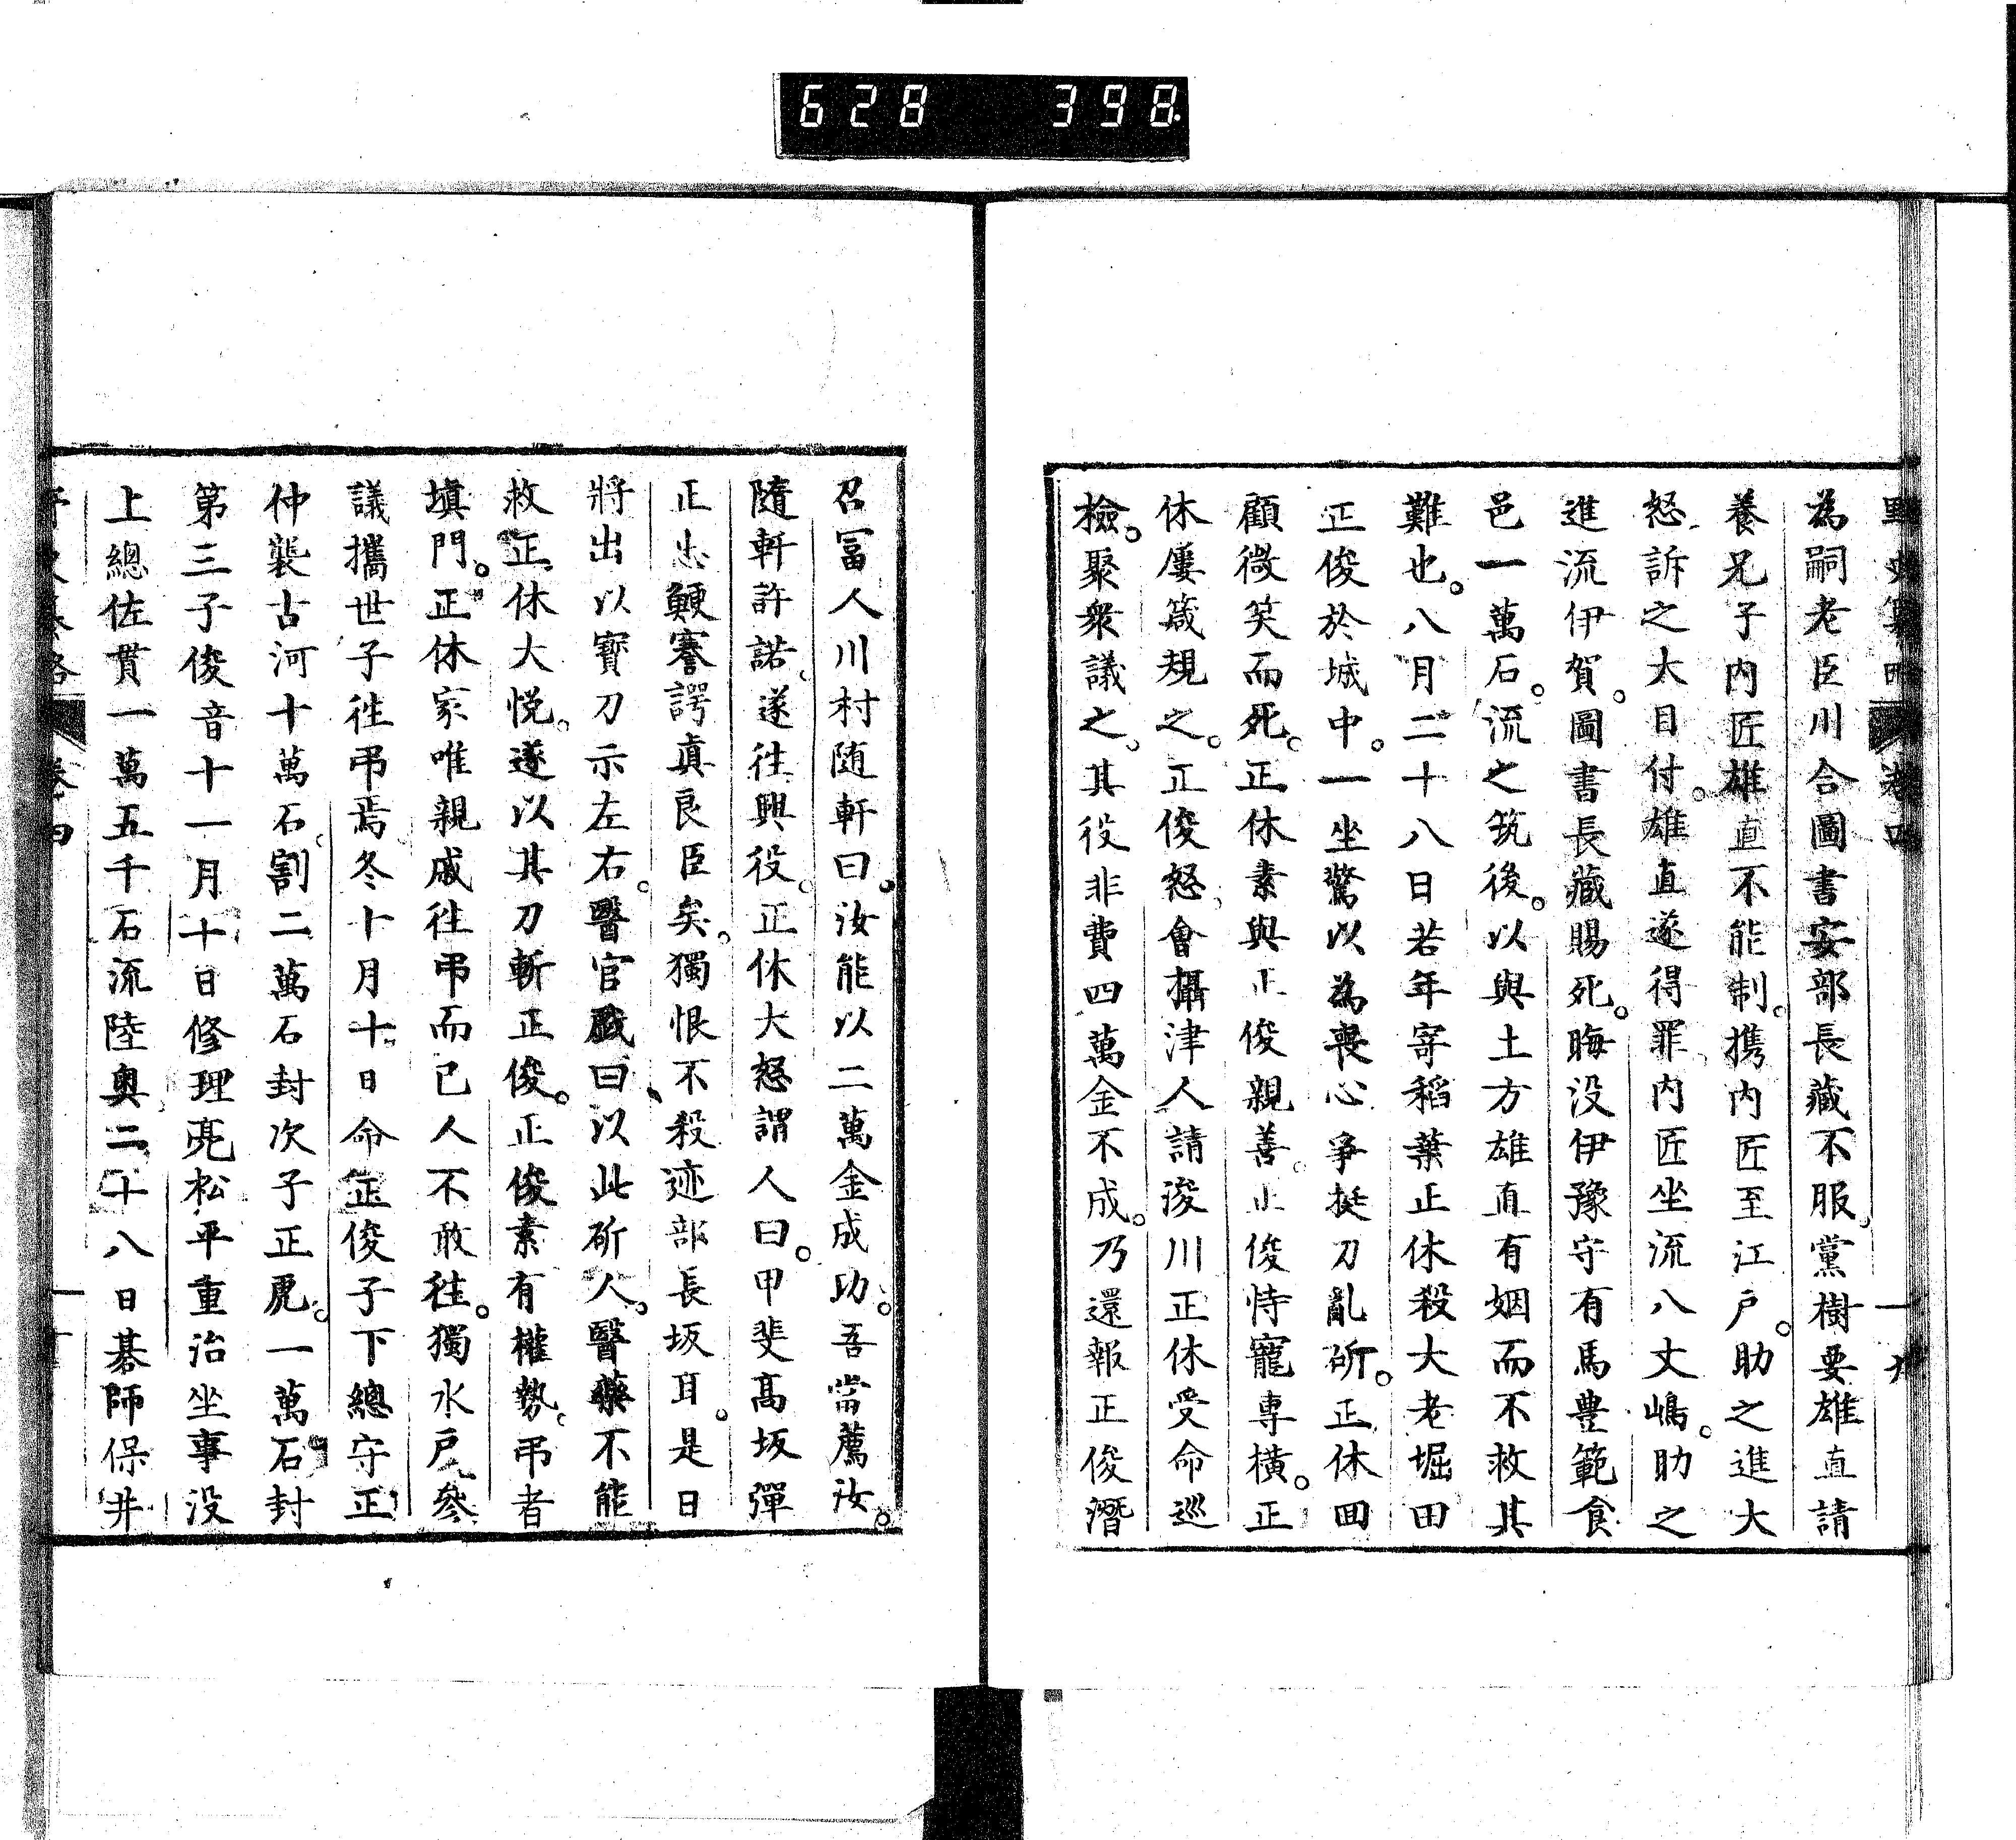 628 398
野史纂略 卷四 十九
為嗣老臣川合圖書安部長藏不服黨樹要雄直請
養兄子内匠雄直不能制。携内匠至江戸。助之進大
怒訴之大目付。雄直遂得罪内匠坐流八丈嶋。助之
進流伊賀。圖書長藏賜死。晦没伊豫守有馬豊範食
邑一萬石。流之筑後。以與土方雄直有姻而不救其
難也。八月二十八日若年寄稻葉正休殺大老堀田
正俊於城中。一坐驚以為喪心爭挺刀亂斫。正休回
顧微笑而死。正休素與正俊親善。正俊恃寵専横。正
休屢箴規之。正俊怒會攝津人請浚川正休受命巡
檢。聚衆議之、其役非費四萬金不成。乃還報正俊潛
召冨人川村随軒曰。汝能以二萬金成功。吾當薦汝。
隨軒許諾。遂往興役。正休大怒謂人曰。甲斐髙坂彈
正忠鯁謇諤真良臣矣。獨恨不殺迹部長坂耳。是日
將出以寳刀示左右。醫官戯曰、以此斫人。醫藥不能
救正休大悦。遂以其刀斬正俊。正俊素有權勢。弔者
塡門。正休家唯親戚往弔而已人不敢往。獨水戸參
議攜世子往弔焉冬十月十日命正俊子下總守正
仲襲古河十萬石。割二萬石封次子正虎。一萬石封
第三子俊音十一月十日修理亮松平重治坐事没
上總佐貫一萬五千石流陸奥二十八日碁師保井
卷四